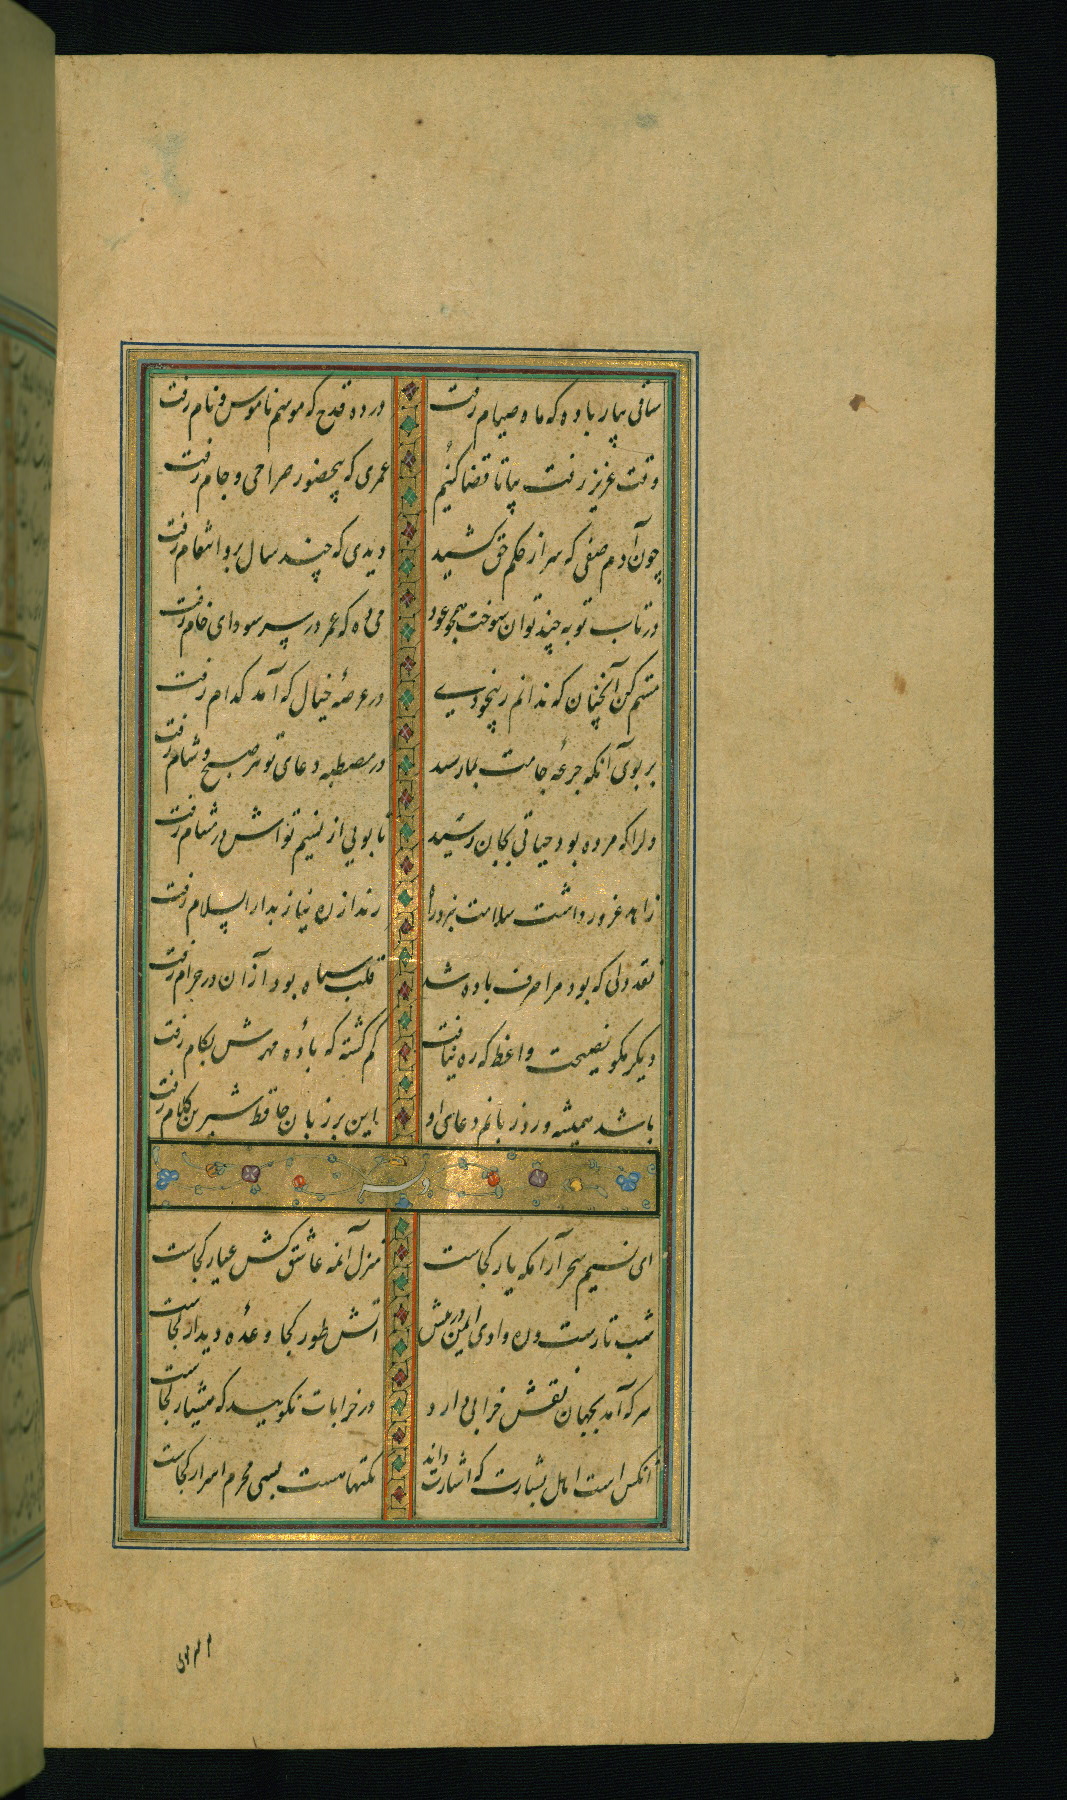 ساقی بیار باده که ماه صیام رفت درده قدح که موسم ناموس و نام رفت
وقت عزیز رفت بیا تا قضا کنیم عمری که بیحضور صراحی و جام رفت
چون آدم صفی که سر از حکم حق کشید دیدی که چند سال برو انتقام رفت
در تاب توبه چند توان سوخت همچو عود می ده که عمر در سر سودای خام رفت
مستم کن آنچنان که ندانم ز بیخودی در عرصهٔ خیال که آمد کدام رفت
بر بوی آنکه جرعهٔ جامت بما رسد در مصطبه دعای تو هر صبح و شام رفت
دلرا که مرده بود حیاتی بجان رسید تا بویی از نسیم تواش در مشام رفت
زاهد غرور داشت سلامت نبرد راه رند از ره نیاز بدار السلام رفت
نقد دلی که بود مرا صرف باده شد قلب سیاه بود از آن در حرام رفت
دیگر مگو نصیحت واعظ که ره نیافت گم گشته که بادهٔ مهرش بکام رفت
باشد همیشه ورد زبانم دعای او این بر زبان حافظ شیرین کلام رفت
وله
ای نسیم سحر آرامکه یار کجاست منزل آنمه عاشق کش عیار کجاست
شب تارست و ره وادی ایمن در پیش آتش طور کجا وعدهٔ دیدار کجاست
هر که آمد بجهان نقش خرابی دارد در خرابات نگویید که هشیار کجاست
آنکس است اهل بشارت که اشارت داند نکتها هست بسی محرم اسرار کجاست